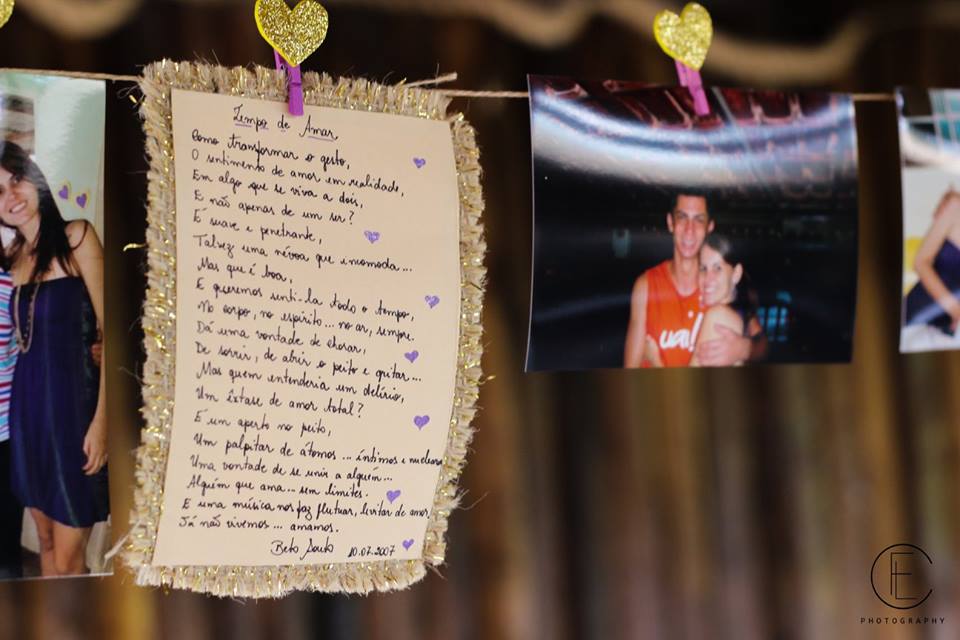 Tempo de Amar
Como transformar o gesto,
O sentimento de amor em realidade,
Em algo que se viva a dois,
E não apenas de um ser?
É suave e penetrante,
Talvez uma névoa que incomoda...
Mas que é boa,
E queremos senti-la todo o tempo,
No corpo, no espírito... no ar, sempre.
Dá uma vontade de chorar,
De sorrir, de abrir o peito e gritar...
Mas quem entenderia um delírio,
Um êxtase de amor total?
É um aperto no peito,
Um palpitar de átomos... íntimos e nucleares
Uma vontade de se unir a alguém...
Alguém que ama... sem limites.
E uma música nos faz flutuar, levitar de amor,
Já não vivemos... amamos.
Beto Souto 10.07.2007
uai!
PHOTOGRAPHY